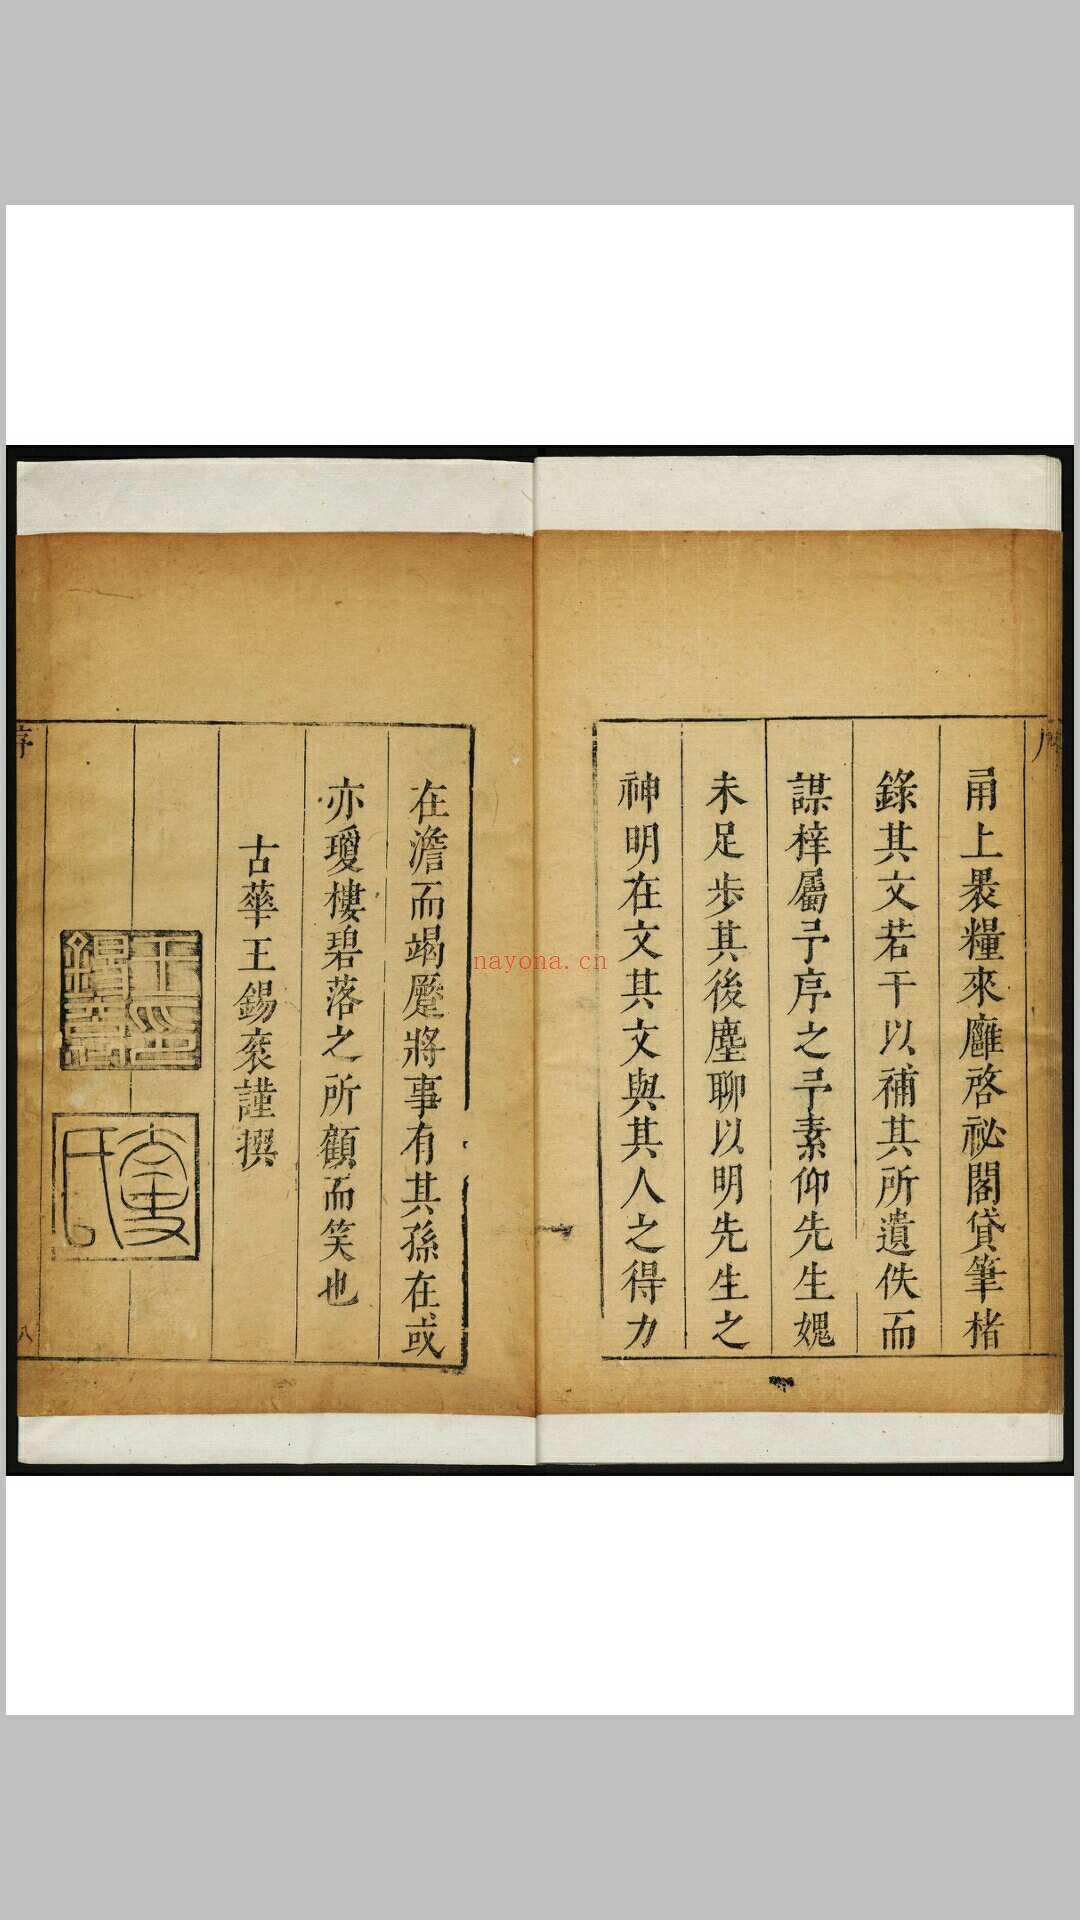 甬上褁糧來廱啓祕閣貸筆楮
錄其文若干以補其所遺佚而
謀梓屬予序之予素仰先生媿
未足步其後塵聊以明先生之
神明在文其文與其人之得力
在澹而竭蹷將事有其孫在或
亦瓊樓碧落之所顧而笑也
古華王錫袞謹撰
王印錫袞
序
八
nayona.cn